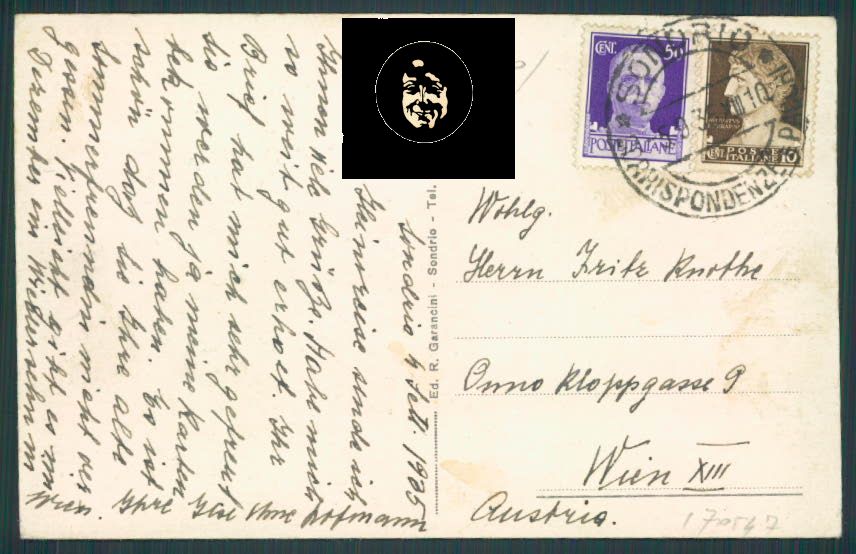 Sondrio 4 Sett. 1935
Heimreise sende ich
Ihnen viele Grüße. Habe mich
so weit gut erholt. Ihr
Brief hat mich sehr gefreut
Sie werden ja meine Karten
bekommen haben. Es ist
schön daß Sie Ihre alte
Sommerfreundin nicht ver
gessen. Vielleicht gibt es im
Dezember ein Wiedersehn in
Wien. Ihre Hofmann
Ed. R. Garancini - Sondrio - Tel.
CENT. 50
POSTE ITALIANE
CENT POSTE ITALIANE 10
SONDRIO
CORRISPONDENZE
Wohlg.
Herrn Fritz Knothe
Onno Kloppgasse 9
Wien XIII
Austria.